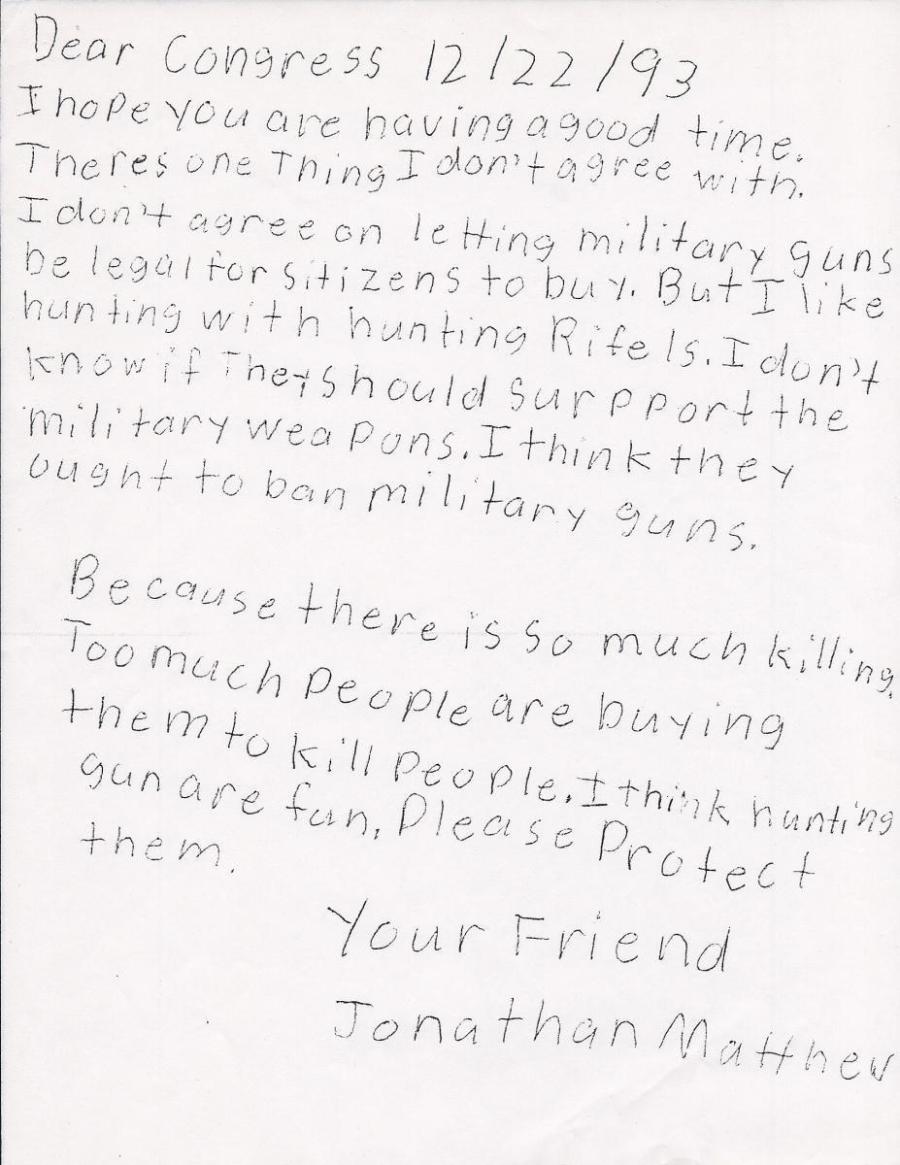 Dear Congress 12/22/93
I hope you are having a good time.
Theres one Thing I don't agree with.
I don't agree on letting military guns
be legal for sitizens to buy. But I like
hunting with hunting Rifels. I don't
know if They should surpport the
military weapons. I think they
ought to ban military guns.
Because there is so much killing.
Too much people are buying
them to kill people. I think hunting
gun are fun. Please Protect
them.
Your Friend
Jonathan Matthew